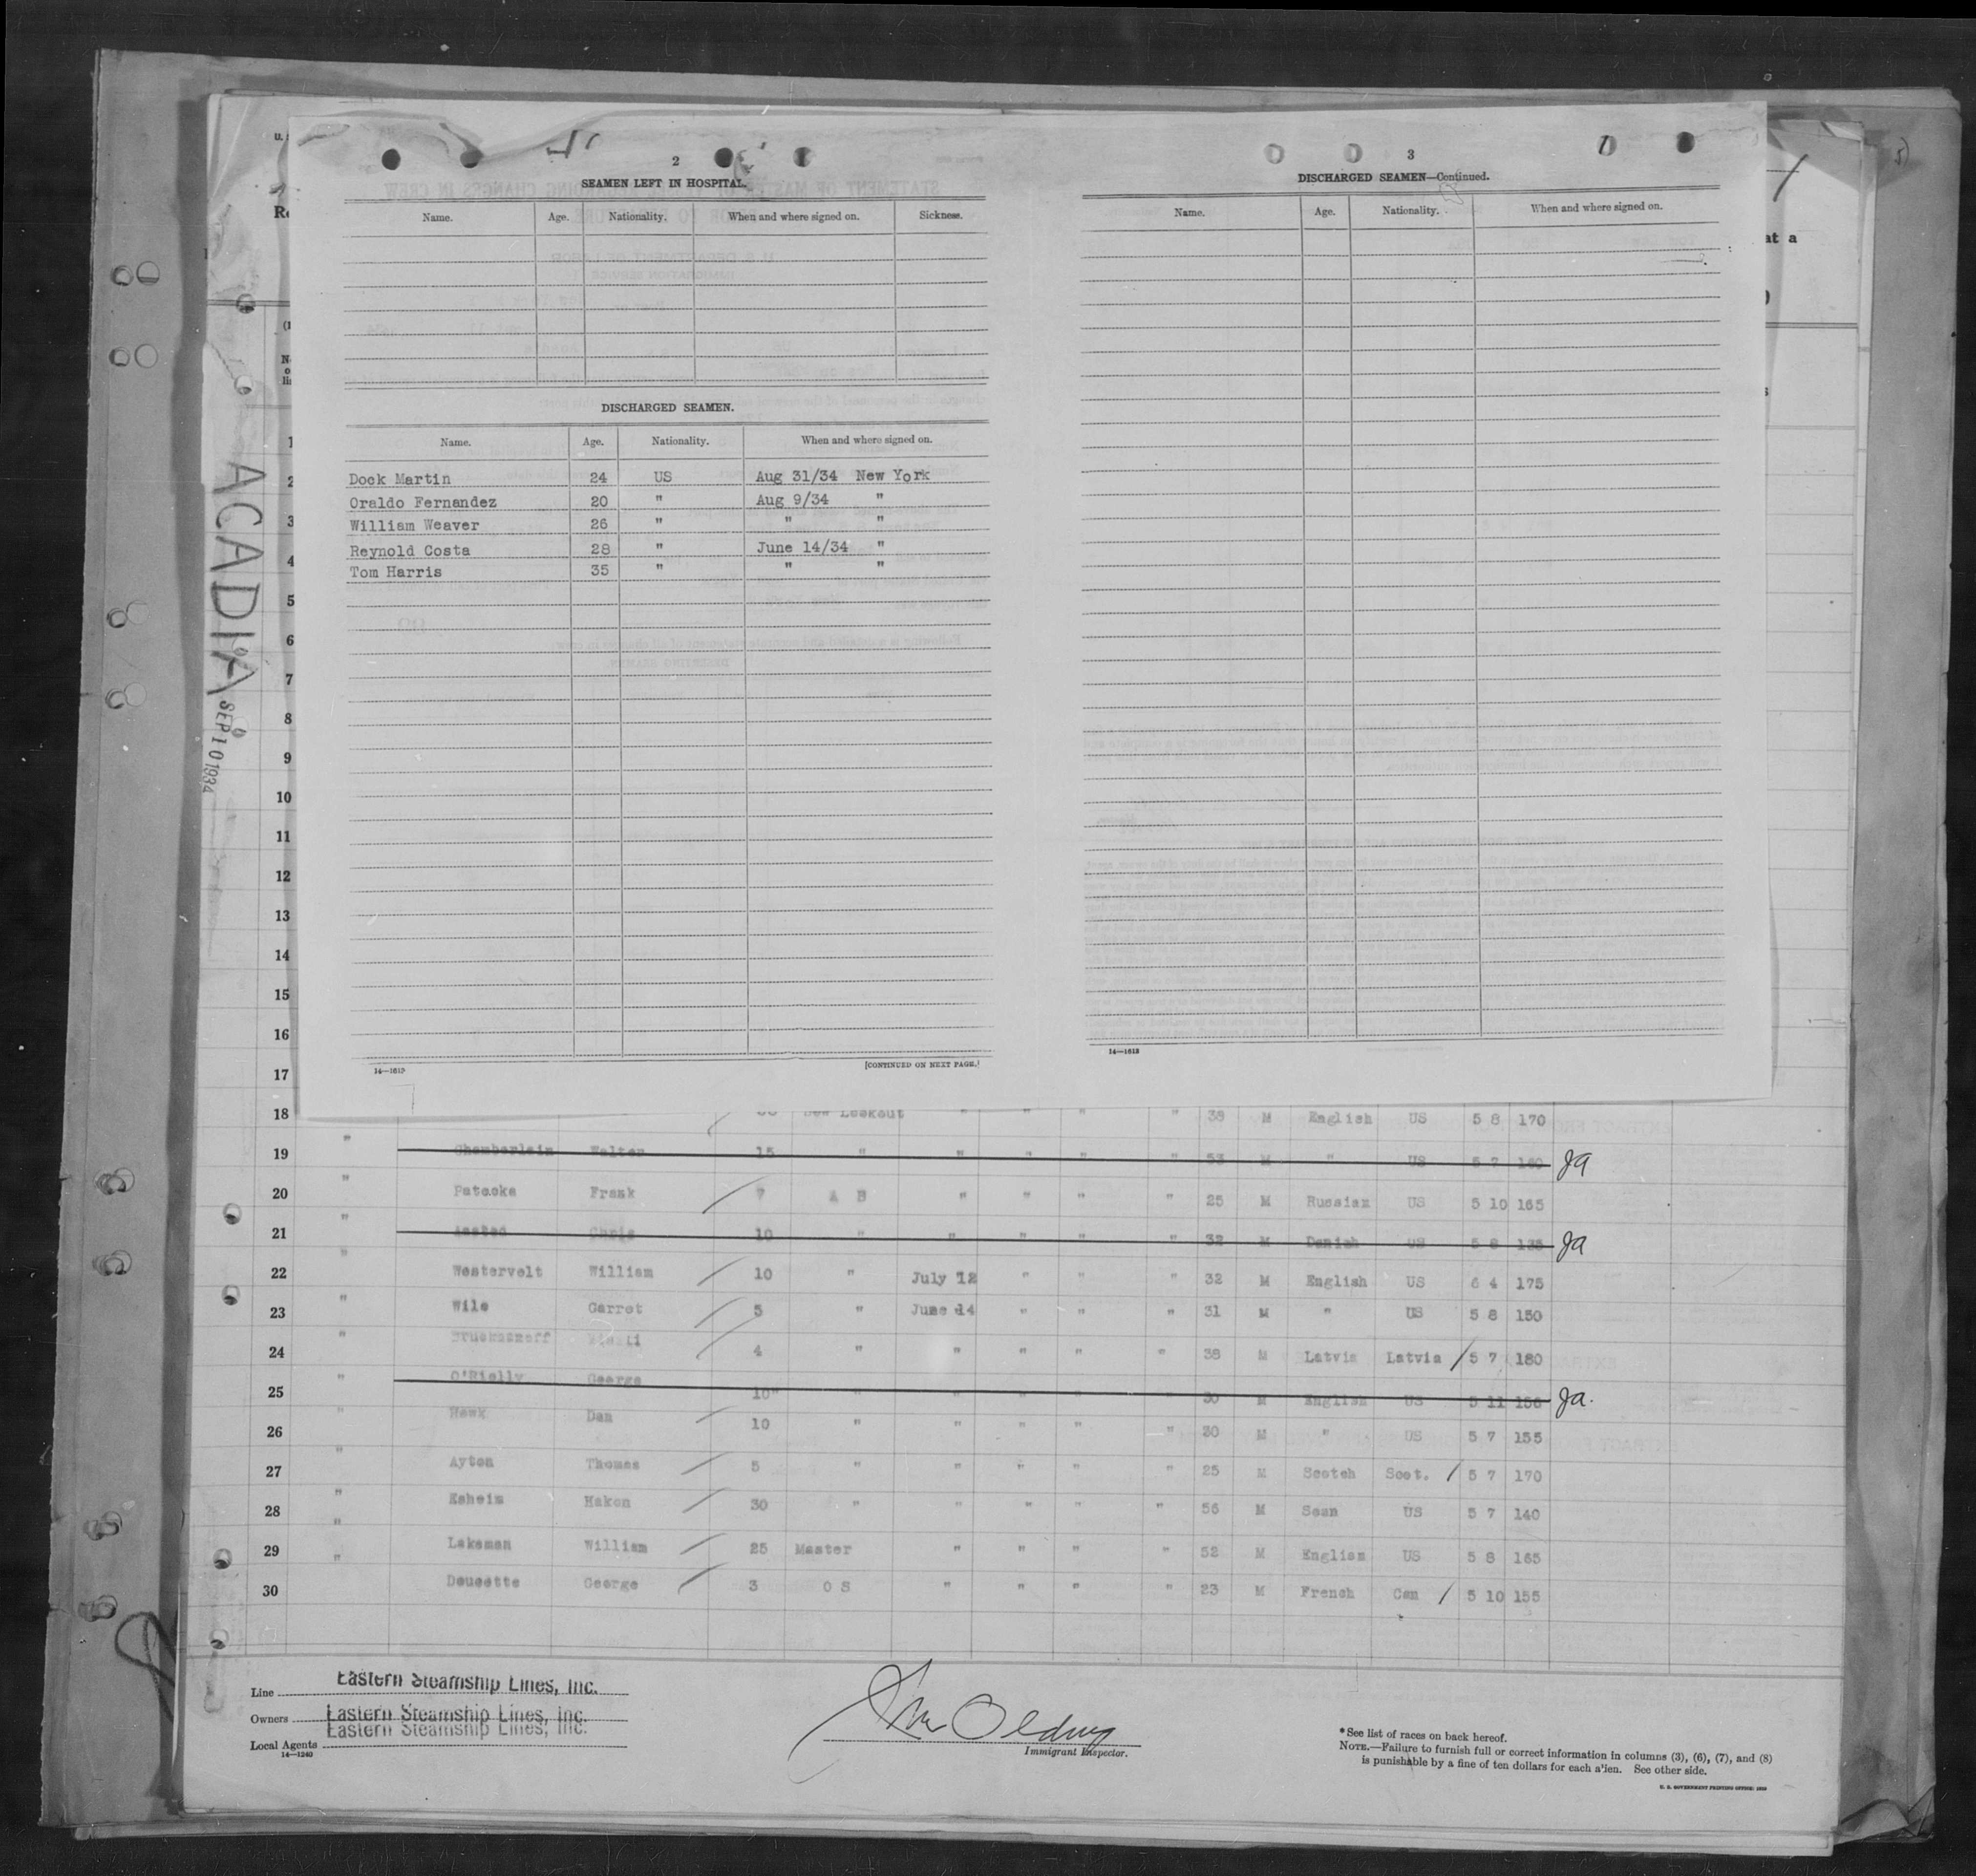 2
SEAMEN LEFT IN HOSPITAL.
Name. Age. Nationality. When and where signed on. Sickness.
DISCHARGED SEAMEN.
Name. Age. Nationality. When and where signed on.
Dock Martin 24 US Aug 31/34 New York
Oraldo Fernandez 20 " Aug 9/34 "
William Weaver 26 " " "
Reynold Costa 28 " June 14/34 "
Tom Harris 35 " " "
[CONTINUED ON NEXT PAGE.]
3
DISCHARGED SEAMEN—Continued.
Name. Age. Nationality. When and where signed on.
14—1613
at a
ACADIA
SEP 10 1934
1
2
3
4
5
6
7
8
9
10
11
12
13
14
15
16
17
18 Lookout " " " " 38 M English US 5 8 170
19 " Chamberlain Walter 15 " " " " " 53 M " US 5 7 160 JA
20 " Patecka Frank 7 A B " " " " 25 M Russian US 5 10 165
21 " Chris 10 " " " " " 32 M Danish US 5 8 135 JA
22 " Westervelt William 10 " July 12 " " " 32 M English US 6 4 175
23 " Wile Garret 5 " June 14 " " " 31 M " US 5 8 150
24 " 4 " " " " " 38 M Latvia Latvia / 5 7 180
25 " O'Rielly George 10 " " " " " 30 M English US 5 11 156 JA.
26 " Hawk Dan 10 " " " " " 30 M " US 5 7 155
27 " Ayton Thomas 5 " " " " " 25 M Scotch Scot. / 5 7 170
28 " Esheim Hakon 30 " " " " " 56 M Scan US 5 7 140
29 " Lakeman William 25 Master " " " " 52 M English US 5 8 165
30 " Doucette George 3 O S " " " " 23 M French Can / 5 10 155
Line Eastern Steamship Lines, Inc.
Owners Eastern Steamship Lines, Inc.
Local Agents Eastern Steamship Lines, Inc.
14—1240
Immigrant Inspector.
*See list of races on back hereof.
NOTE.—Failure to furnish full or correct information in columns (3), (6), (7), and (8)
is punishable by a fine of ten dollars for each alien. See other side.